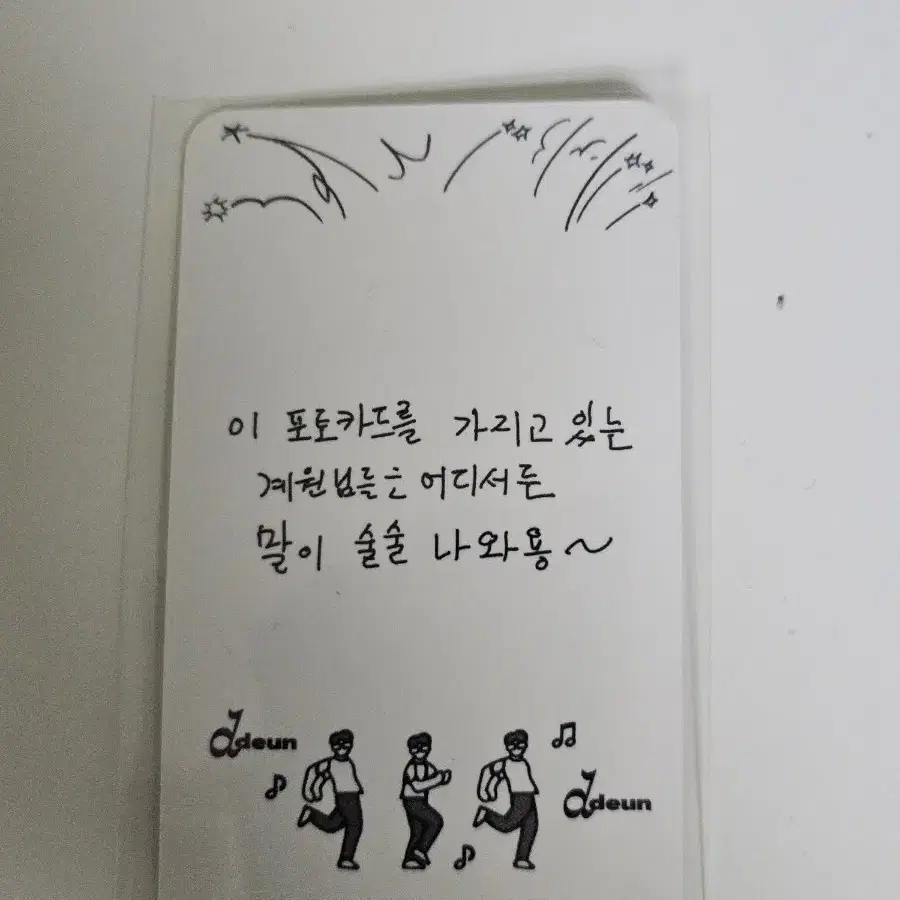 이 포토카드를 가지고 있는
계원님들은 어디서든
말이 술술 나와용~
ddeun
ddeun